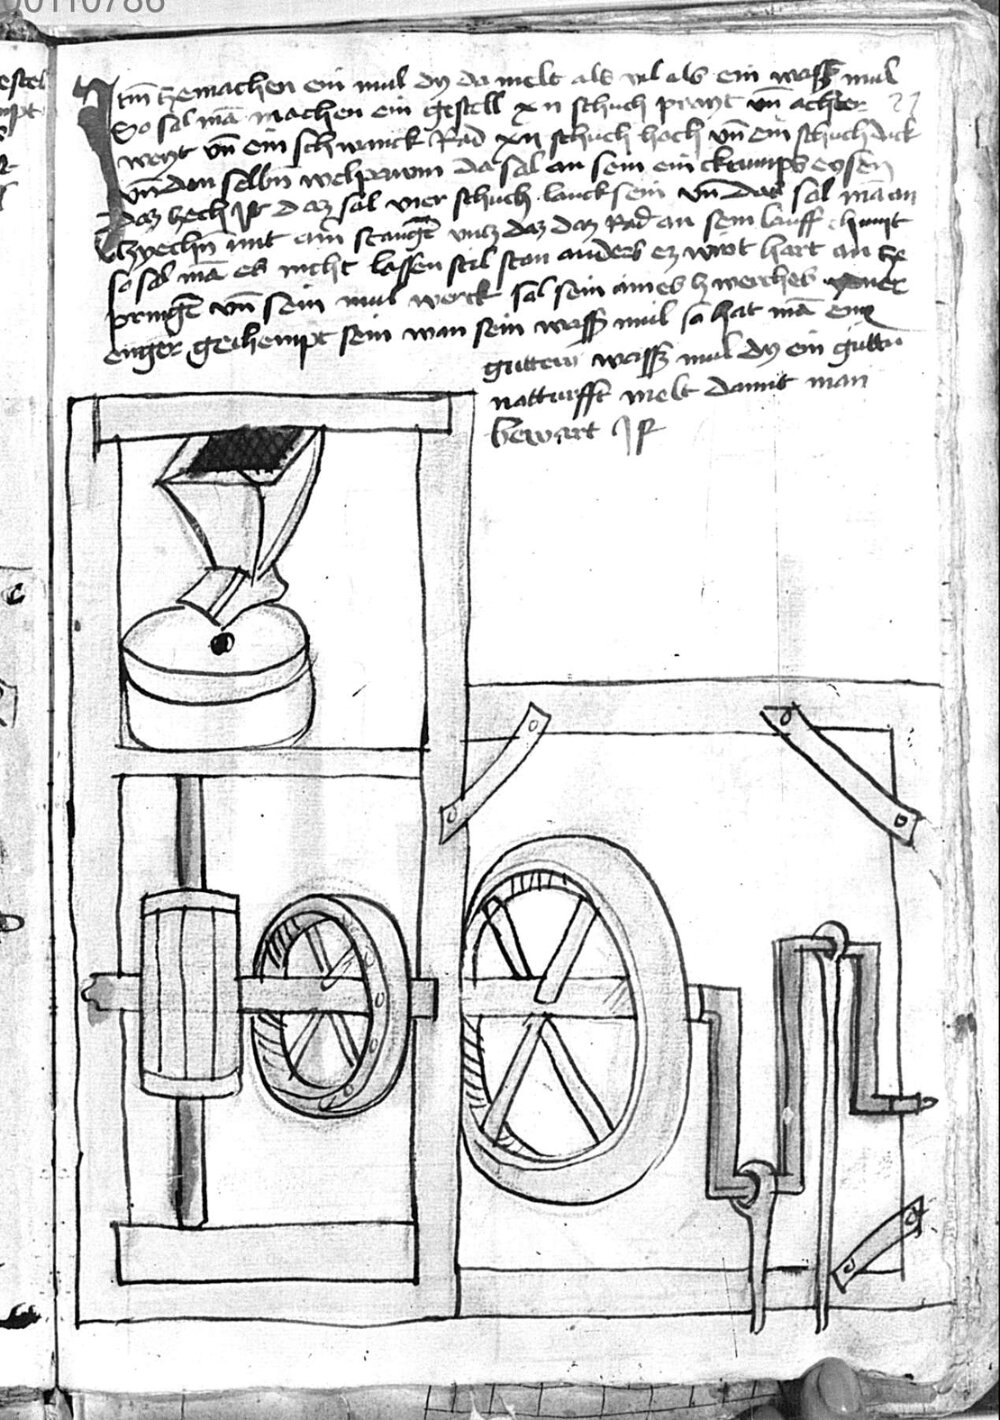 00110786
Itm̄ zemachen ein mul dy da melt als vil als ein wass mul
So sal mā machen ein gestell xii schuch prayt vn̄ achter 27
weyt vn̄ ein schwinck Rad xii schuch hoch vn̄ ein schuch dick
vn̄ den selbn̄ welpawm da sal an sein ein krumps eysen
daz hech ist daz sal vier schuch lanck sein vn̄ daz sal mā an
czyechn̄ mit ein stangē vntz daz daz Rad an sein lauff chumt
so sal mā es nicht lassen stil stan anders ez wirt hart an ze
pringē vn̄ sein mul werck sal sein eines zwerches
enger gechempt sein wan sein wass mul so hat mā ein
gutten wass mul dy ein gutten
notturfft melt damit man
bewart ist